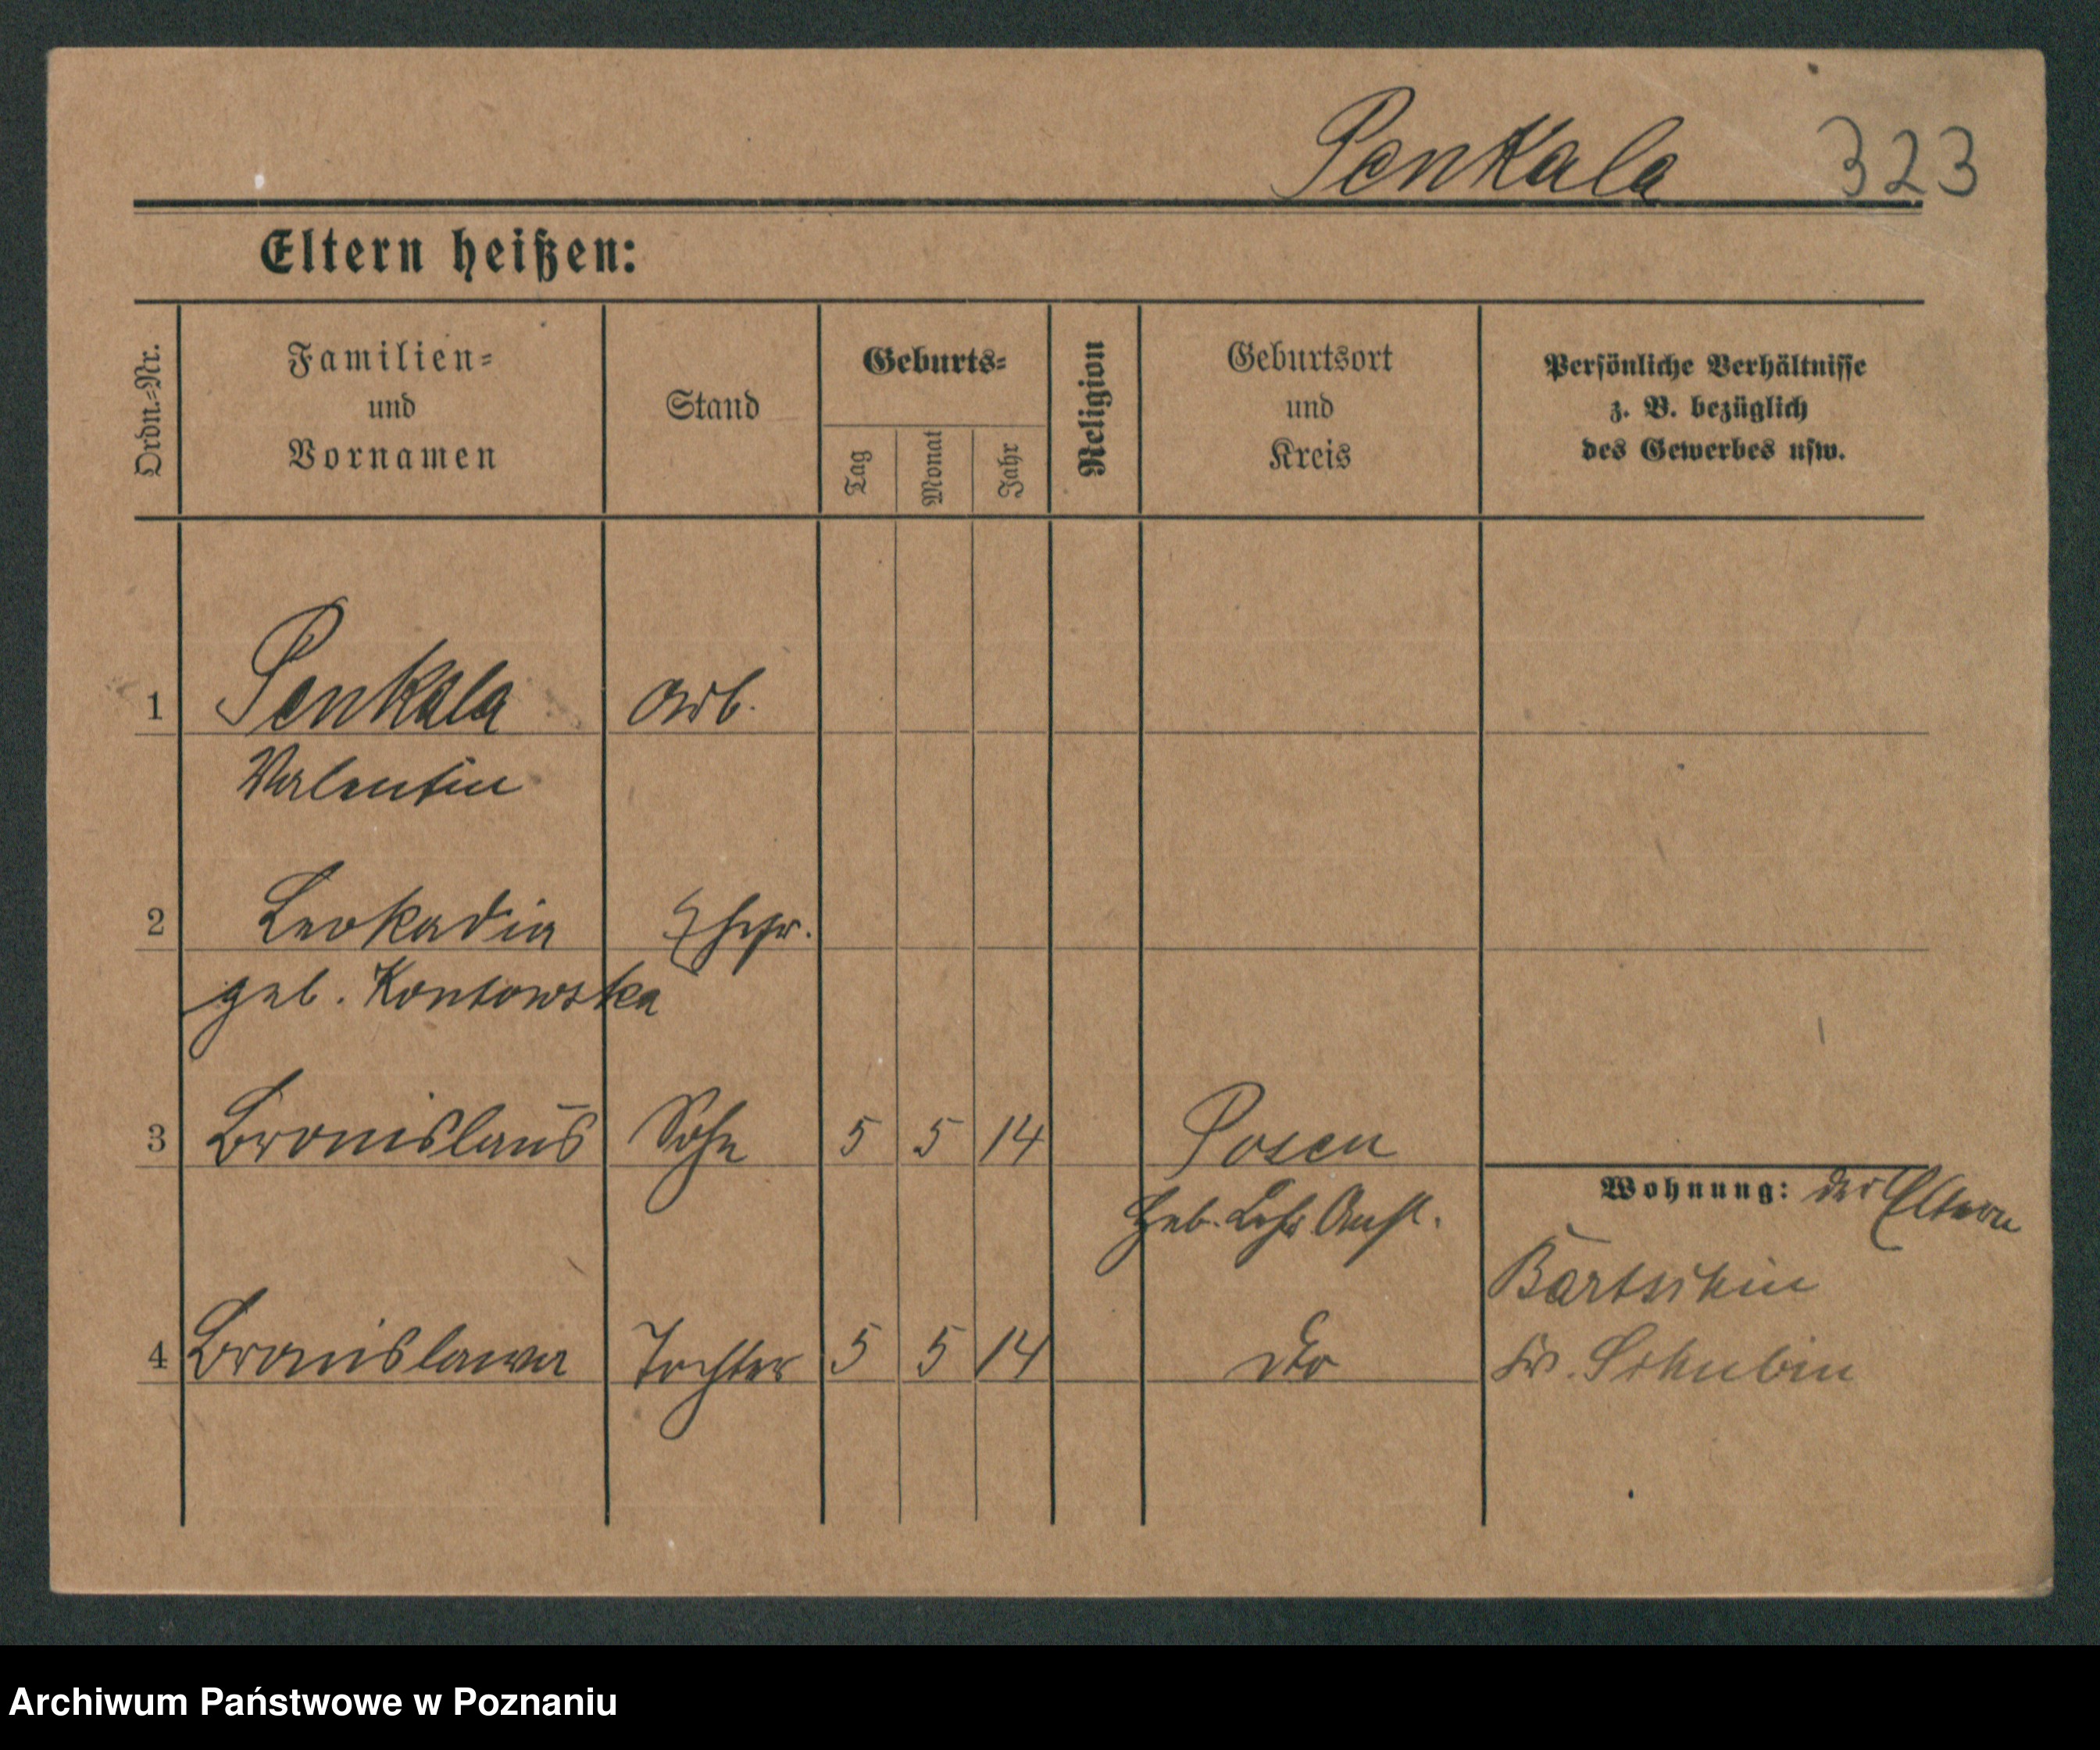 Penkala 323
Eltern heißen:
Ordn.-Nr. Familien- und Vornamen Stand Geburts- Tag Monat Jahr Religion Geburtsort und Kreis Persönliche Verhältnisse z. B. bezüglich des Gewerbes usw.
1 Penkala Arb.
Valentin
2 Leokadia Ehefr.
geb. Kontowska
3 Bronislaus Sohn 5 5 14 Posen
Wohnung: der Eltern
Heb. Lehr Anst.
Bartschin
4 Bronislawa Tochter 5 5 14 dto Kr. Schubin
Archiwum Państwowe w Poznaniu